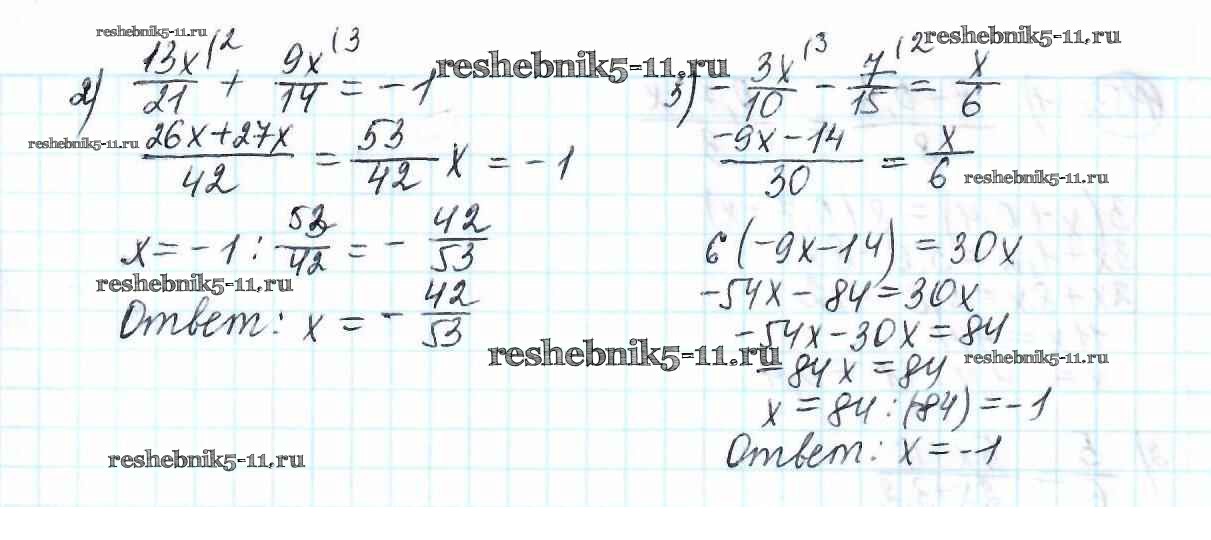 reshebnik5-11.ru
2) 13x(2/21 + 9x(3/14 = -1
reshebnik5-11.ru
(26x+27x)/42 = 53/42 x = -1
x = -1 : 53/42 = - 42/53
reshebnik5-11.ru
Ответ: x = - 42/53
reshebnik5-11.ru
reshebnik5-11.ru
reshebnik5-11.ru
reshebnik5-11.ru
3) - 3x(3/10 - 7(2/15 = x/6
(-9x-14)/30 = x/6
reshebnik5-11.ru
6(-9x-14) = 30x
-54x-84=30x
-54x-30x=84
reshebnik5-11.ru
-84x=84
x=84:(-84)=-1
Ответ: x=-1